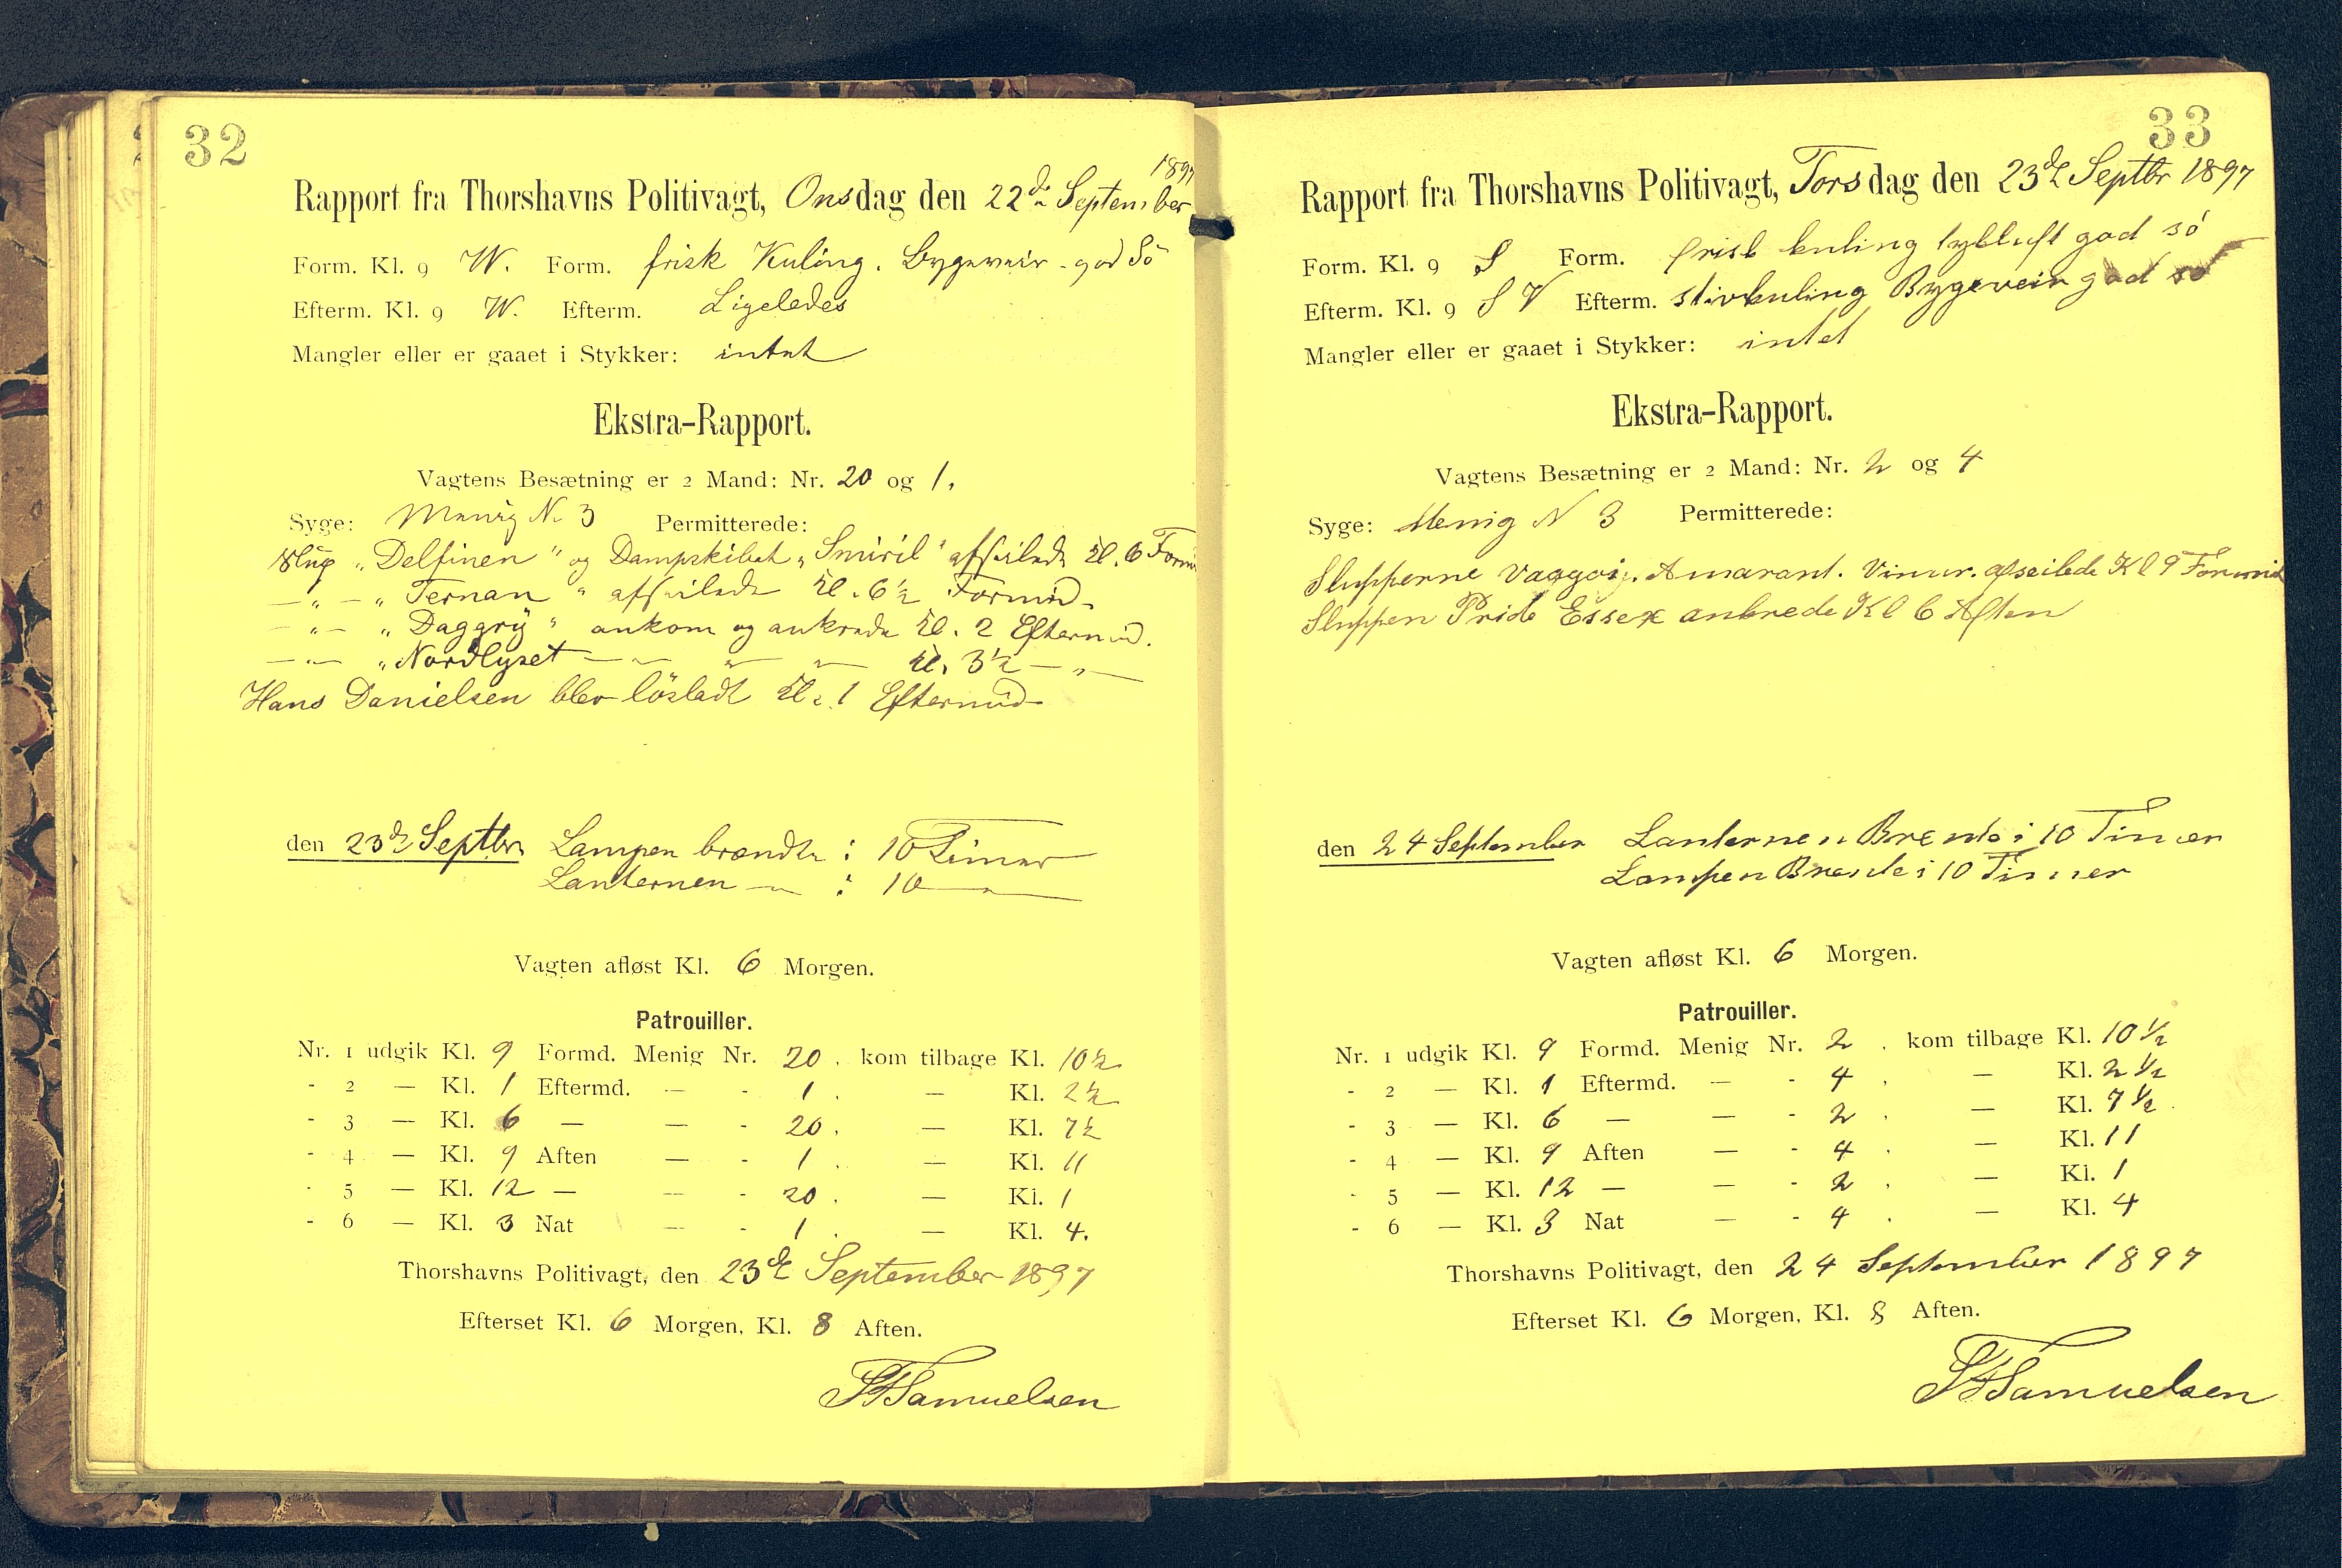 32
Rapport fra Thorshavns Politivagt, Onsdag den 22de September 1897
Form. Kl. 9 W. Form. frisk Kuling. Bygeveir - god Sö
Efterm. Kl. 9 W. Efterm. Ligeledes
Mangler eller er gaaet i Stykker: intet
Ekstra-Rapport.
Vagtens Besætning er 2 Mand: Nr. 20 og 1.
Syge: Menig N. 3 Permitterede:
Slup „Delfinen" og Dampskibet „Smiril" afseilede Kl. 6 Formd
— " — „Ternan" afseilede Kl. 6½ Formid.
— " — „Daggry" ankom og ankrede Kl. 2 Eftermid.
— " — „Nordlyset — " — " — " — Kl. 3½ — " —
Hans Danielsen blev lösladt Kl. 1 Eftermid
den 23de Septbr Lampen brændte i 10 Timer
Lanternen — " — i 10 — " —
Vagten afløst Kl. 6 Morgen.
Patrouiller.
Nr. 1 udgik Kl. 9 Formd. Menig Nr. 20. kom tilbage Kl. 10½
- 2 — Kl. 1 Eftermd. — - 1. — Kl. 2½
- 3 — Kl. 6 — — - 20. — Kl. 7½
- 4 — Kl. 9 Aften — - 1. — Kl. 11
- 5 — Kl. 12 — — - 20. — Kl. 1
- 6 — Kl. 3 Nat — - 1. — Kl. 4.
Thorshavns Politivagt, den 23de September 1897
Efterset Kl. 6 Morgen, Kl. 8 Aften.
Samuelsen
33
Rapport fra Thorshavns Politivagt, Torsdag den 23de Septbr 1897
Form. Kl. 9 S Form. frisk kuling tykluft god só
Efterm. Kl. 9 S V Efterm. stivkuling Bygeveir god só
Mangler eller er gaaet i Stykker: intet
Ekstra-Rapport.
Vagtens Besætning er 2 Mand: Nr. 2 og 4
Syge: Menig N 3 Permitterede:
Slupperne Vaagoi. Amarant. Vimur. afseilede Kl 9 Formid
Sluppen Pride Essex ankrede Kl 6 Aften
den 24 September Lanternen Brente i 10 Timer
Lampen Brente i 10 Timer
Vagten afløst Kl. 6 Morgen.
Patrouiller.
Nr. 1 udgik Kl. 9 Formd. Menig Nr. 2. kom tilbage Kl. 10 ½
- 2 — Kl. 1 Eftermd. — - 4. — Kl. 2 ½
- 3 — Kl. 6 — — - 2. — Kl. 7 ½
- 4 — Kl. 9 Aften — - 4. — Kl. 11
- 5 — Kl. 12 — — - 2. — Kl. 1
- 6 — Kl. 3 Nat — - 4. — Kl. 4
Thorshavns Politivagt, den 24 September 1897
Efterset Kl. 6 Morgen, Kl. 8 Aften.
Samuelsen